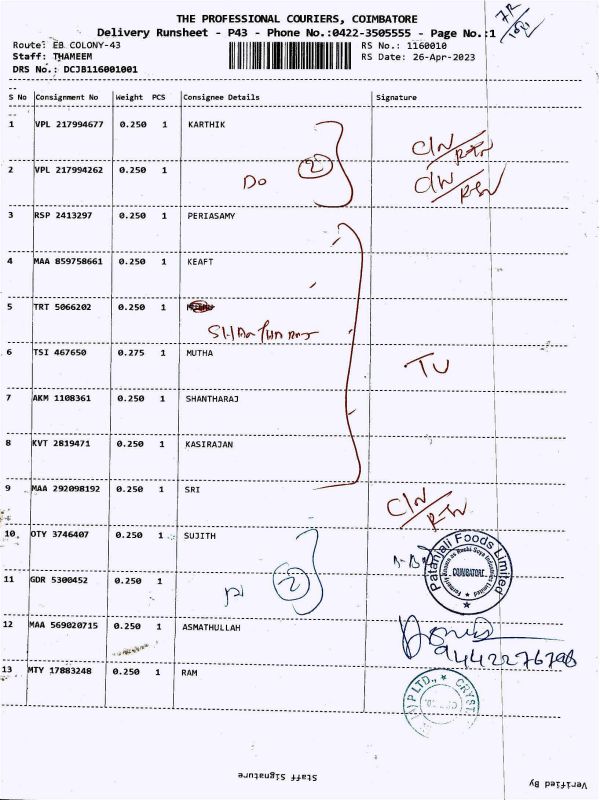 THE PROFESSIONAL COURIERS, COIMBATORE
Delivery Runsheet - P43 - Phone No.:0422-3505555 - Page No.:1
Route: EB COLONY-43
RS No.: 1160010
Staff: THAMEEM
RS Date: 26-Apr-2023
DRS No.: DCJB116001001
S No Consignment No Weight PCS Consignee Details Signature
1 VPL 217994677 0.250 1 KARTHIK
2 VPL 217994262 0.250 1
DO 2
3 RSP 2413297 0.250 1 PERIASAMY
4 MAA 859758661 0.250 1 KEAFT
5 TRT 5066202 0.250 1
6 TSI 467650 0.275 1 MUTHA
TU
7 AKM 1108361 0.250 1 SHANTHARAJ
8 KVT 2819471 0.250 1 KASIRAJAN
9 MAA 292098192 0.250 1 SRI
10 OTY 3746407 0.250 1 SUJITH
Patanjali Foods Limited
COIMBATORE
11 GDR 5300452 0.250 1
2
12 MAA 569020715 0.250 1 ASMATHULLAH
9442276798
13 MTY 17883248 0.250 1 RAM
P LTD., ★ CRYST
Staff Signature
Verified By